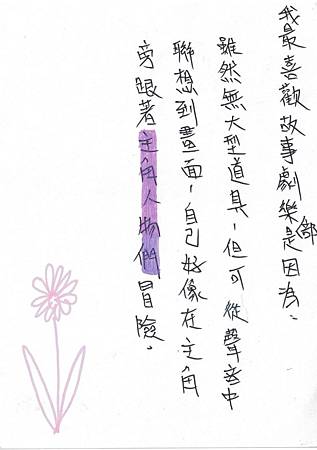 我最喜歡故事劇樂部是因為、
雖然無大型道具，但可從聲音中
聯想到畫面，自己好像在主角
旁跟著主角人物們冒險。